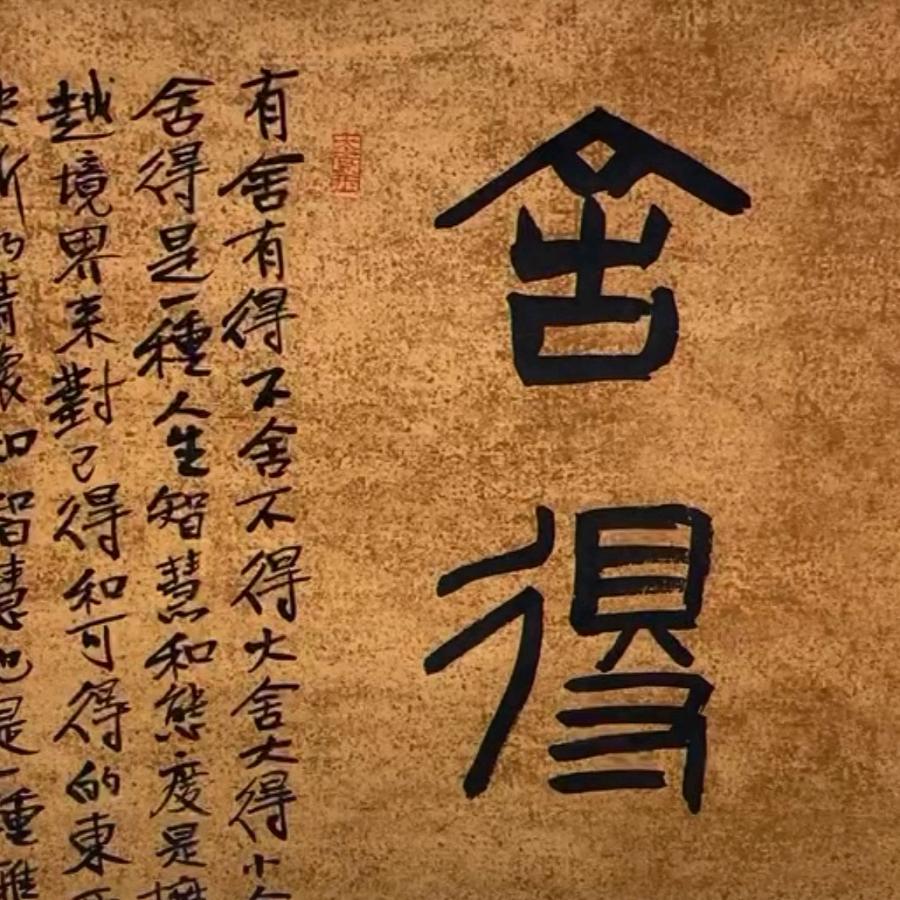 舍得
有舍有得不舍不得大舍大得小舍
舍得是一種人生智慧和態度是擁
越境界来對已得和可得的東西
的情懷和智慧也是一種雅